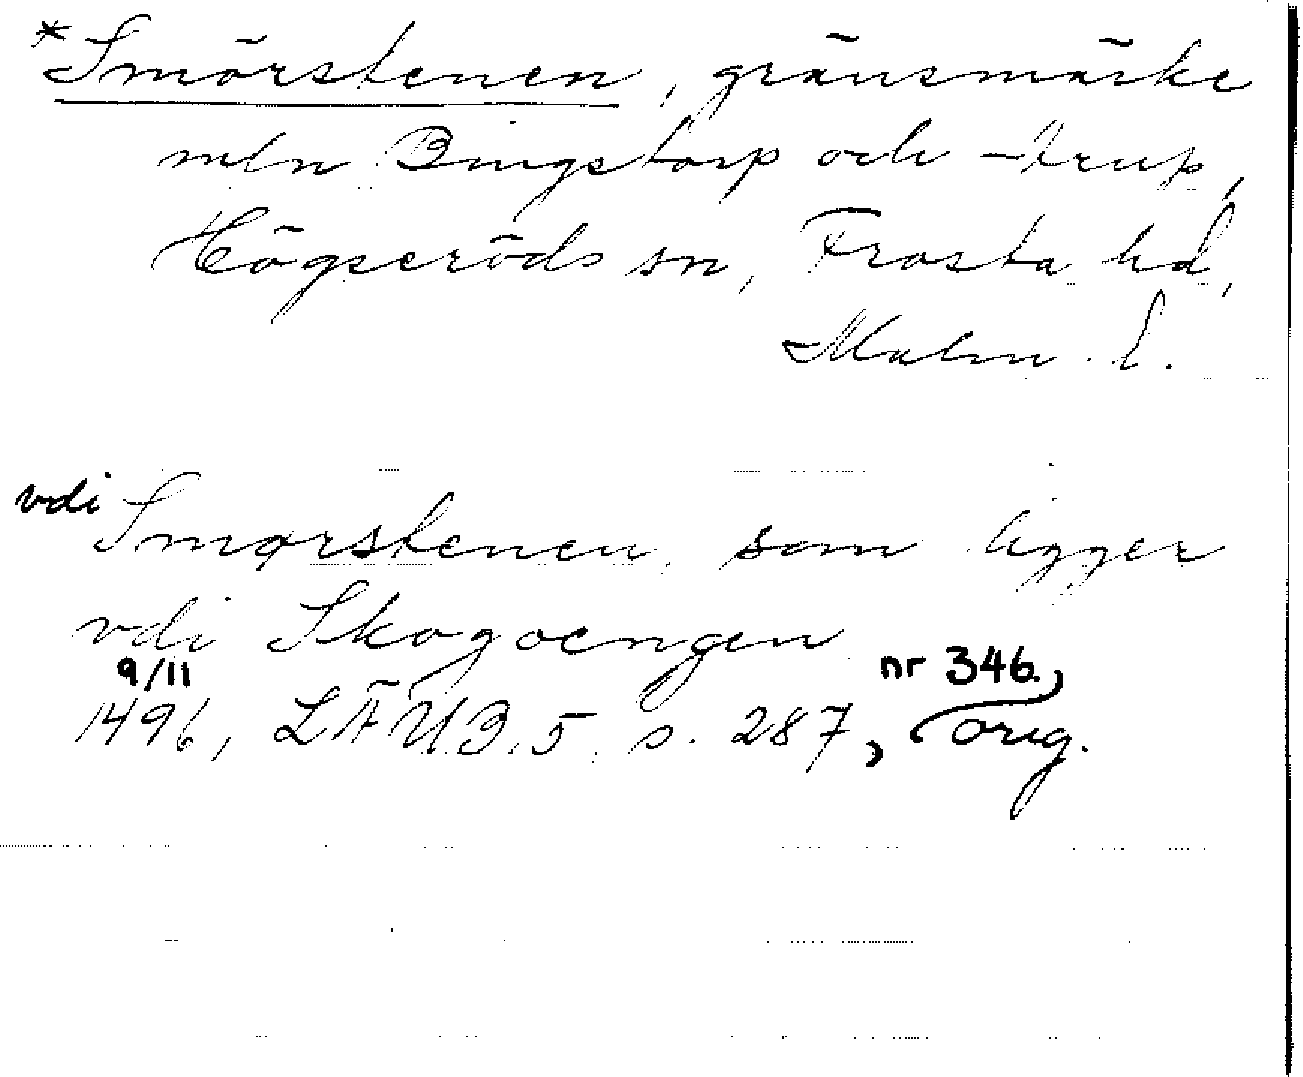 *Smörstenen, gränsmärke
mln Bingstorp och -trup,
Högseröds sn, Frosta hd,
Malm. l.
vdi Smørstenen, som ligger
vdi Skogoengen
9/11 nr 346.,
1496, LÄUB. 5. s. 287, orig.